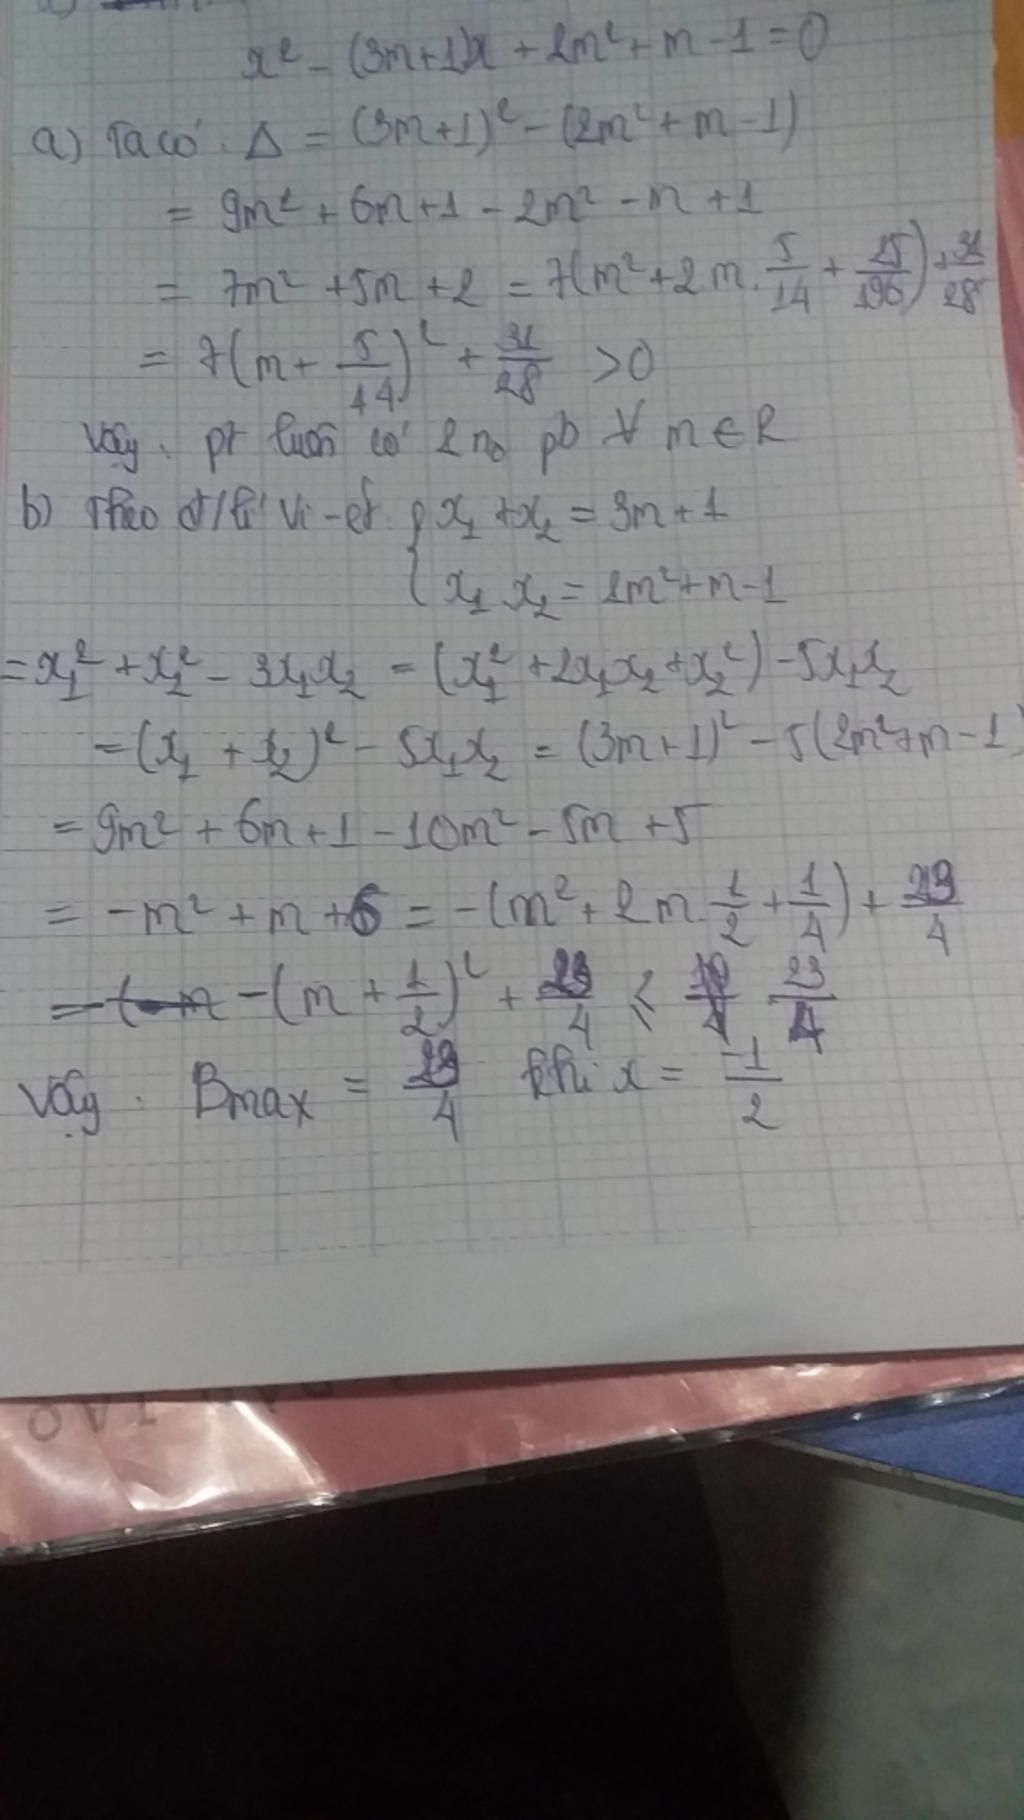 x² - (3m+1)x + 2m² + m - 1 = 0
a) Ta có: Δ = (3m+1)² - (2m² + m - 1)
= 9m² + 6m + 1 - 2m² - m + 1
= 7m² + 5m + 2 = 7(m² + 2m. 5/14 + 25/196) + 31/28
= 7(m + 5/14)² + 31/28 > 0
Vậy. pt luôn có 2 n0 pb ∀ m ∈ R
b) Theo đ/lí Vi-ét. { x₁ + x₂ = 3m + 1
x₁ x₂ = 2m² + m - 1
= x₁² + x₂² - 3x₁x₂ = (x₁² + 2x₁x₂ + x₂²) - 5x₁x₂
= (x₁ + x₂)² - 5x₁x₂ = (3m+1)² - 5(2m² + m - 1)
= 9m² + 6m + 1 - 10m² - 5m + 5
= -m² + m + 6 = -(m² + 2m 1/2 + 1/4) + 23/4
= -(m + 1/2)² + 23/4 ≤ 23/4
Vậy. Bmax = 23/4 khi x = -1/2
TAO